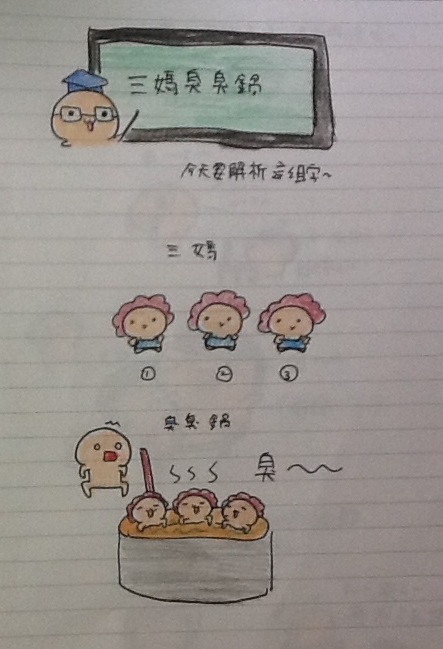 三媽臭臭鍋
今天要解析這組字~
三媽
① ② ③
臭臭鍋
臭~~